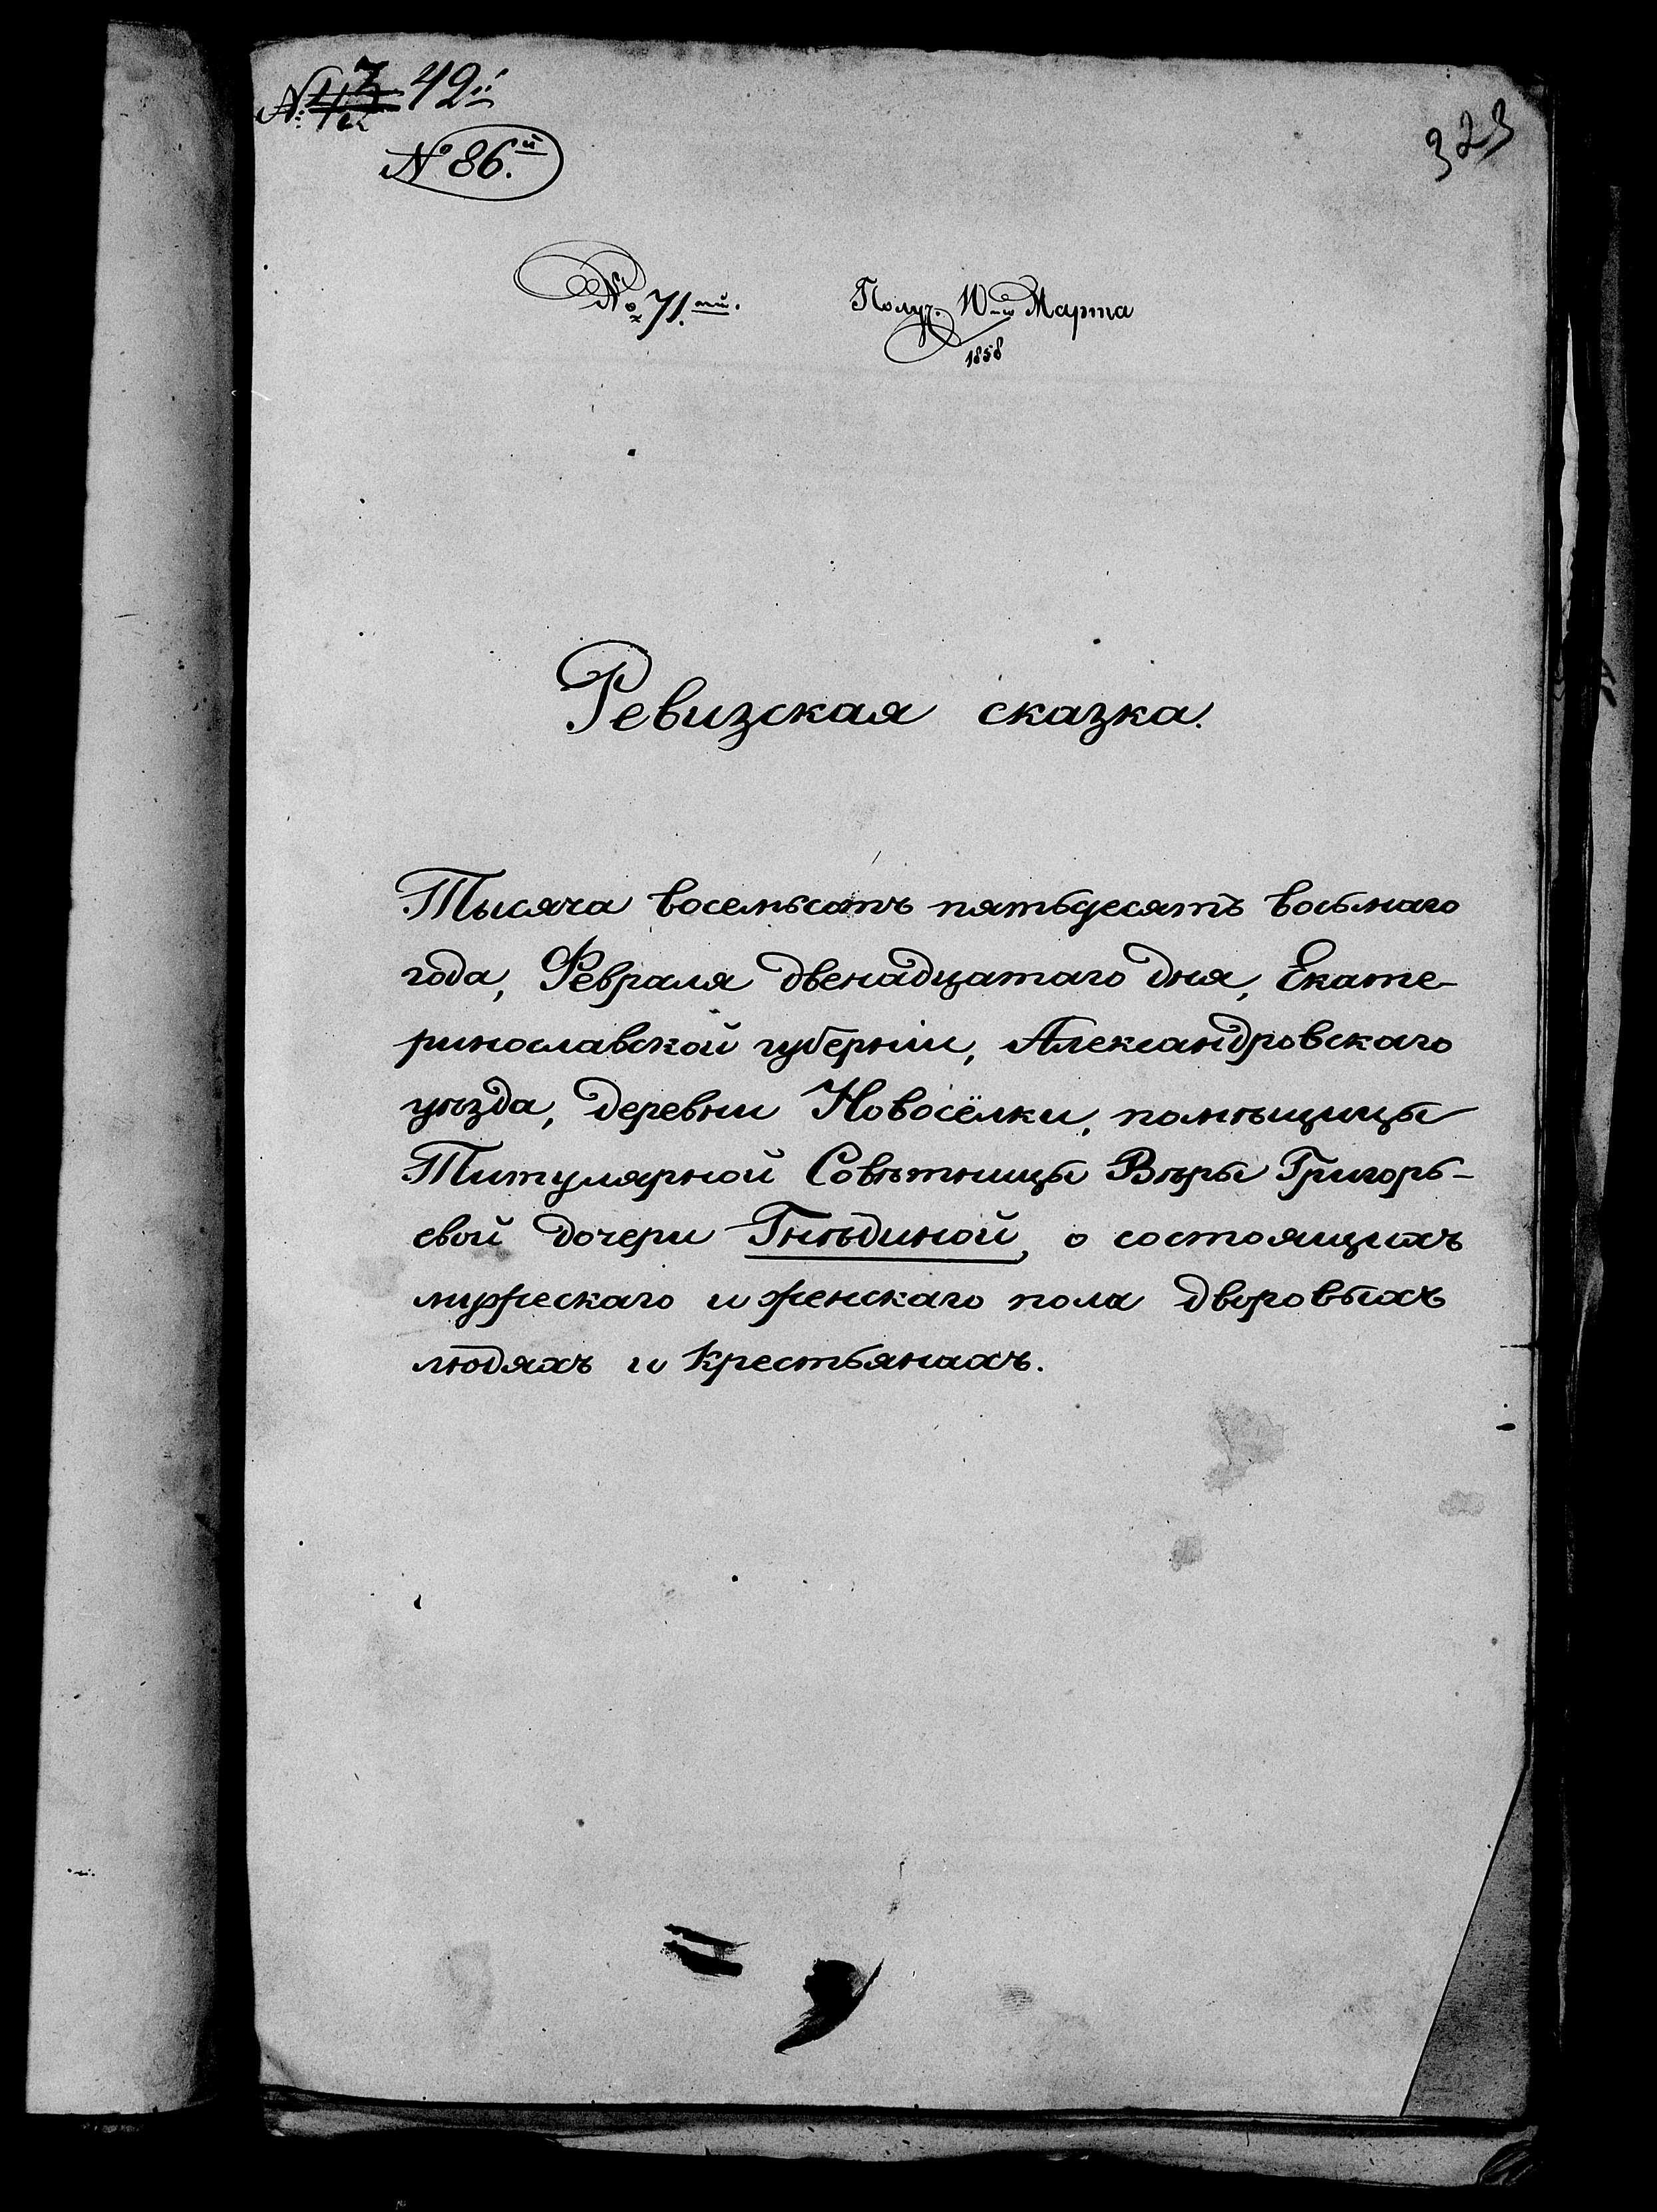 42й
323
№ 86.й
№ 71.ый.
Получ. 10го Марта
1858
Ревизская сказка.
Тысяча восемьсотъ пятьдесятъ восьмаго
года, Февраля двенадцатаго дня, Екате-
ринославской губерніи, Александровскаго
уѣзда, деревни Новосёлки, помѣщицы
Титулярной Совѣтницы Вѣры Григорь-
евой дочери Гнѣдиной, о состоящихъ
мужескаго и женскаго пола дворовыхъ
людяхъ и крестьянахъ.